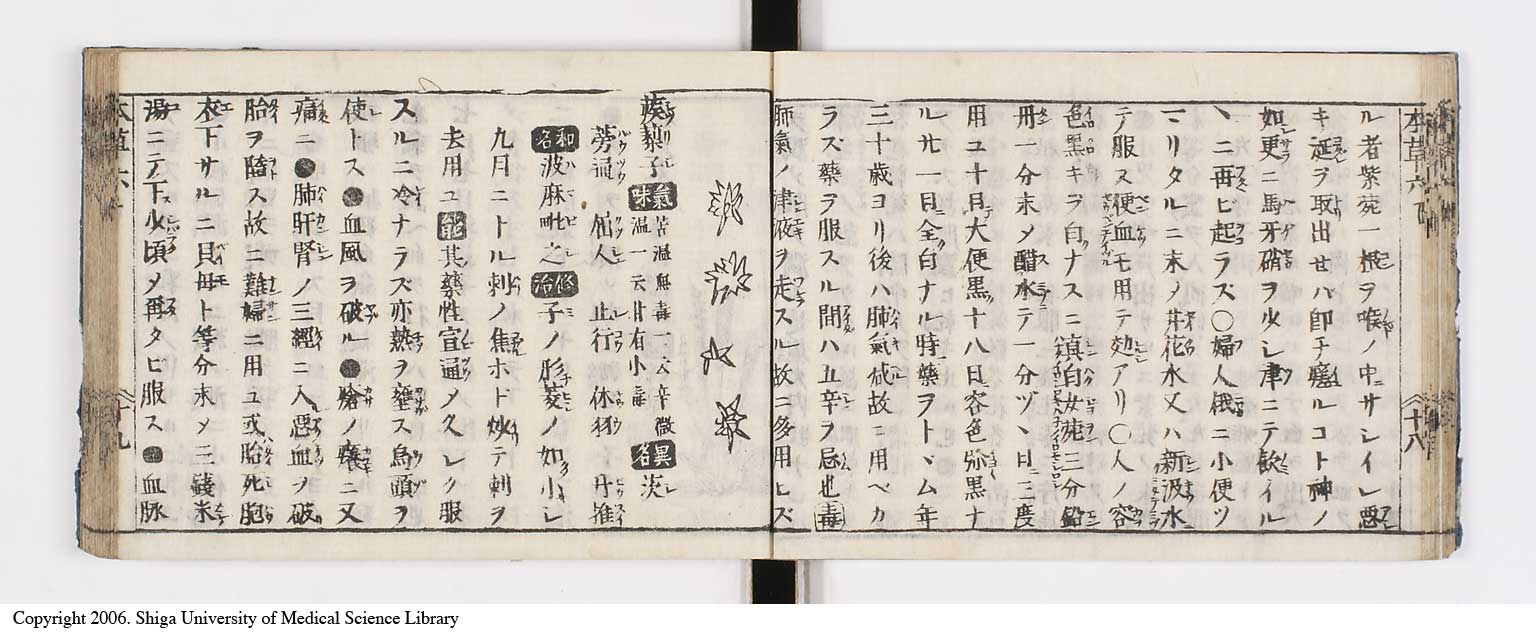 本草六下
十八
ル者紫菀一根ヲ喉ノ中サシイレ悪
キ涎ヲ取出セバ即チ癒ルコト神ノ
如更ニ馬牙硝ヲ少シ津ニテ飲イル
ヽニ再ヒ起ラズ〇婦人俄ニ小便ツ
マリタルニ末ノ井花水又ハ新汲水
テ服ス便血モ用テ効アリ〇人ノ容
色黒キヲ白ナスニ真白女菀三分鉛
丹一分末メ醋水テ一分ヅヽ日三度
用ユ十日大便黒十八日容色弥黒ナ
ル廿一日全白ナル時藥ヲトヾム年
三十歳ヨリ後ハ肺氣減故ニ用ベカ
ラズ藥ヲ服スル間ハ五辛ヲ忌也毒
肺氣ノ津液ヲ走スル故ニ多用ヒズ
蒺蔾子 氣味 苦温無毒一云辛微温一云甘有小毒 異名 茨
蒺通 屈人 止行 休羽 升推
和名 波麻毗之 修治 子ノ形菱ノ如小シ
九月ニトル刺ノ焦ホト炒テ刺ヲ
去用ユ 能 其藥性宣通メ久シク服
スルニ冷ナラズ亦熱ヲ壅ス烏頭ヲ
使トス●血風ヲ破ル●陰ノ㿉ニ又
痛ニ●肺肝腎ノ三經ニ入悪血ノ破
胎ヲ墮ス故ニ難婦ニ用ユ或胎死胞
衣下サルニ貝母ト等分末メ三錢米
湯ニテ下少頃メ再タビ服ス●血脉
十九